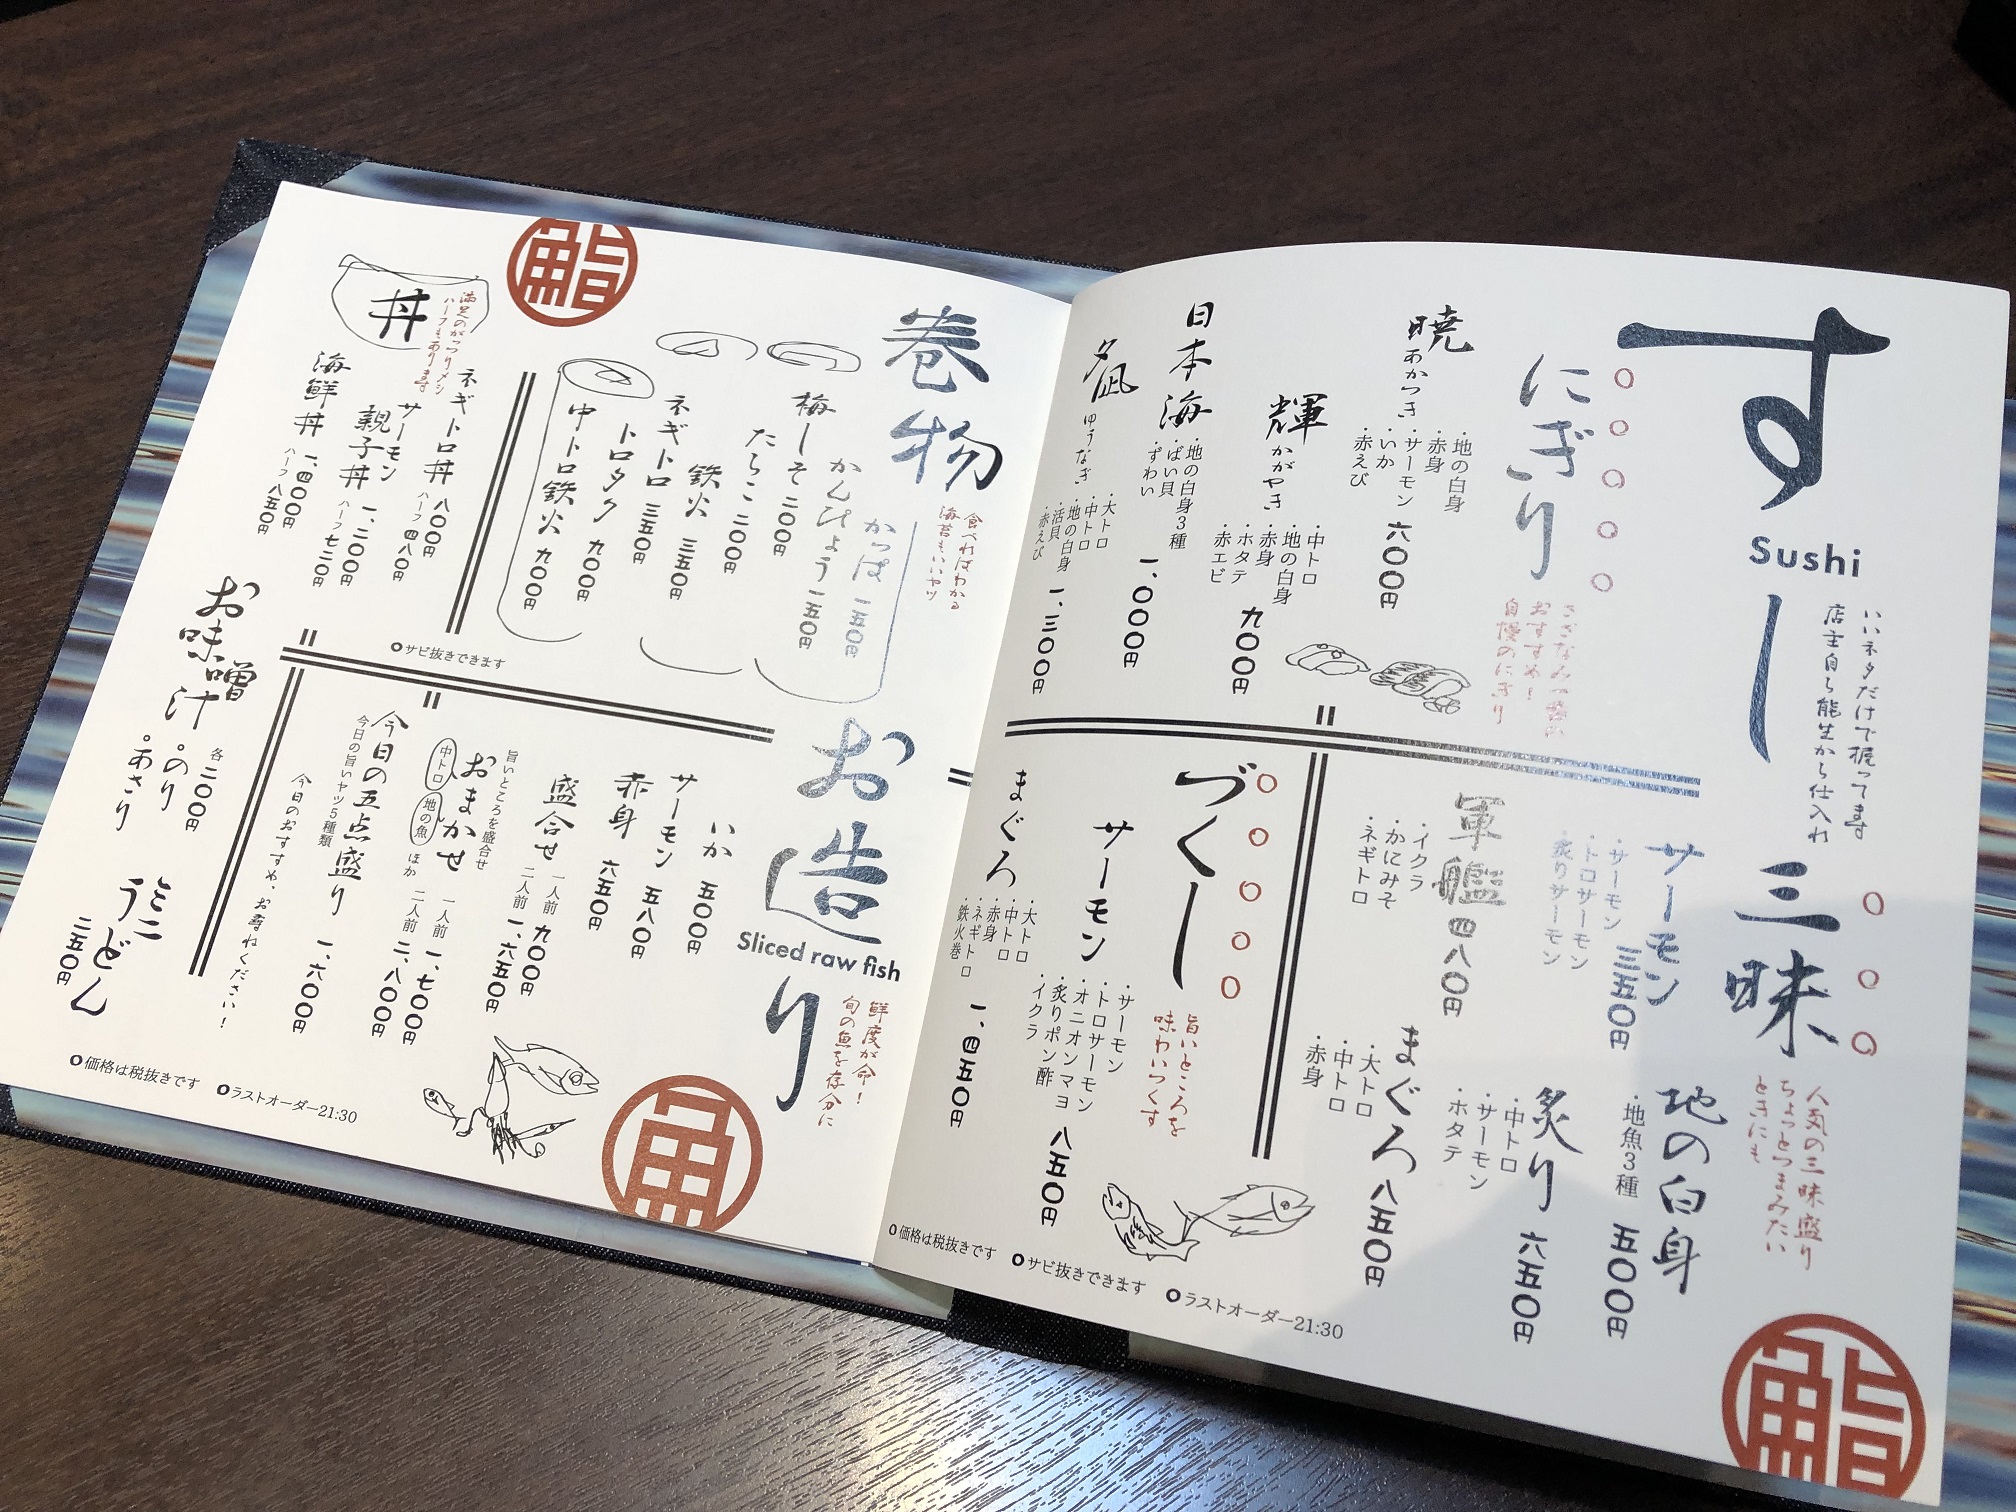 すし
Sushi
いいネタだけで握ってます
店主自ら能生から仕入れ
にぎり
さざなみ一番の
おすすめ！
自慢のにぎり
暁 あかつき
・地の白身
・赤身
・サーモン
・いか
・赤えび
六〇〇円
輝 かがやき
・中トロ
・地の白身
・赤身
・ホタテ
・赤エビ
九〇〇円
日本海
・地の白身3種
・ばい貝
・ずわい
一、〇〇〇円
夕凪 ゆうなぎ
・大トロ
・中トロ
・地の白身
・活貝
・赤えび
一、三〇〇円
三味
人気の三味盛り
ちょっとつまみたい
ときにも
サーモン
・サーモン
・トロサーモン
・炙りサーモン
三五〇円
地の白身
・地魚3種
五〇〇円
軍艦
・イクラ
・かにみそ
・ネギトロ
四八〇円
炙り
・中トロ
・サーモン
・ホタテ
六五〇円
まぐろ
・大トロ
・中トロ
・赤身
八五〇円
づくし
旨いところを
味わいつくす
サーモン
・サーモン
・トロサーモン
・オニオンマヨ
・炙りポン酢
・イクラ
八五〇円
まぐろ
・大トロ
・中トロ
・赤身
・ネギトロ
・鉄火巻
一、四五〇円
価格は税抜きです
サビ抜きできます
ラストオーダー21:30
鮨
巻物
食べればわかる
海苔もいいヤツ
かっぱ 一五〇円
かんぴょう 一五〇円
梅しそ 二〇〇円
たらこ 二〇〇円
鉄火 三五〇円
ネギトロ 三五〇円
トロタク 九〇〇円
中トロ鉄火 九〇〇円
サビ抜きできます
鮨
丼
満足のがっつりメシ
ハーフもあります
ネギトロ丼 八〇〇円
ハーフ 四八〇円
サーモン
親子丼 一、二〇〇円
ハーフ 七二〇円
海鮮丼 一、四〇〇円
ハーフ 八五〇円
お造り
Sliced raw fish
鮮度が命！
旬の魚を存分に
いか 五〇〇円
サーモン 五八〇円
赤身 六五〇円
盛合せ
一人前 九〇〇円
二人前 一、六五〇円
旨いところを盛合せ
おまかせ
中トロ 地の魚 ほか
一人前 一、七〇〇円
二人前 二、八〇〇円
今日の五点盛り
今日の旨いヤツ5種類
一、六〇〇円
今日のおすすめ、お尋ねください！
お味噌汁
・のり
・あさり
各二〇〇円
ミニ
うどん
二五〇円
価格は税抜きです
ラストオーダー21:30
魚